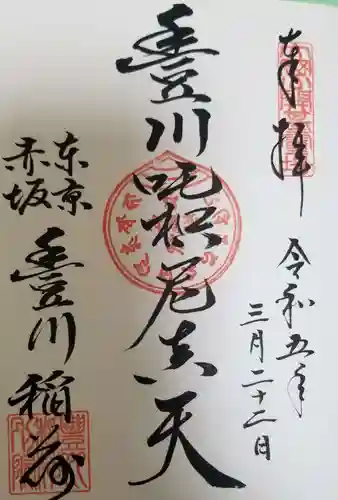 奉拝
令和五年
三月二十二日
豊川吒枳尼真天
東京
赤坂
豊川稲荷